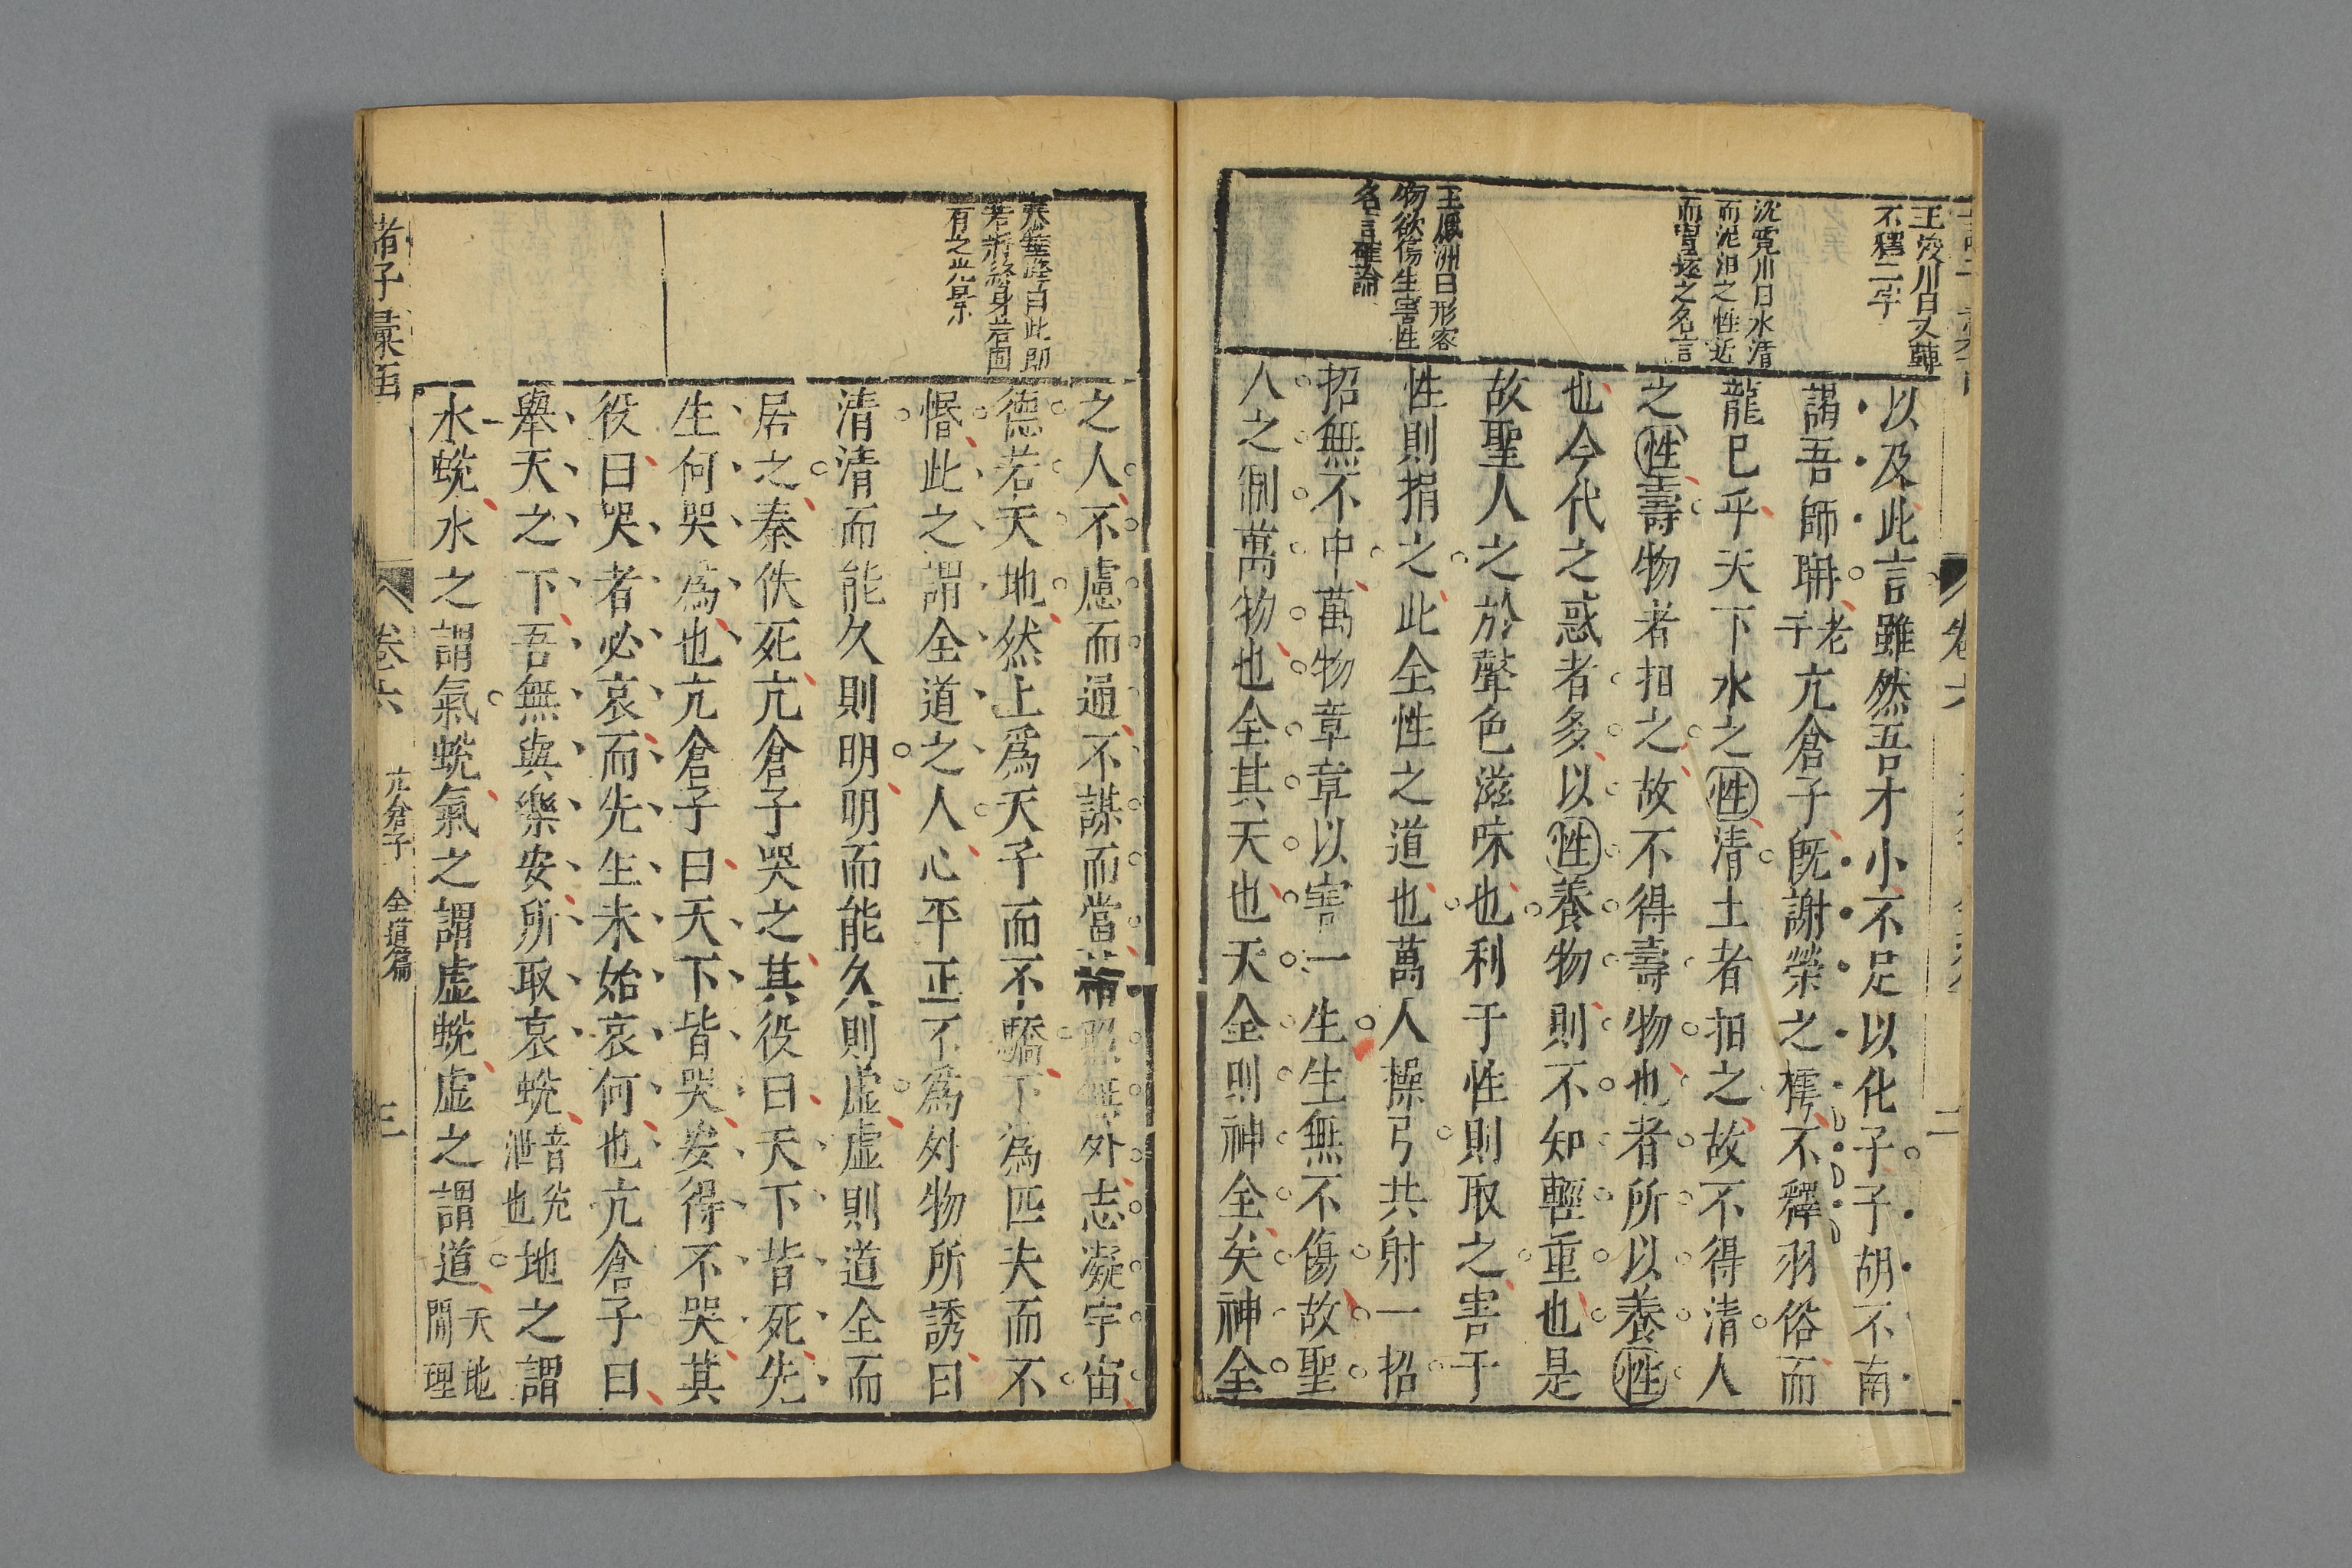 王浚川曰又轉
不釋二字
沈霓川曰水清
而泥汩之性近
而習遠之名言
王鳳洲曰形容
物欲傷生害性
名言確論
以及此言雖然吾才小不足以化子子胡不南
謁吾師聃老子亢倉子既謝榮之樗不釋羽俗而
龍已乎天下水之性清土者抇之故不得清人
之性壽物者抇之故不得壽物也者所以養性
也今代之惑者多以性養物則不知輕重也是
故聖人之於聲色滋味也利于性則取之害于
性則捐之此全性之道也萬人操弓共射一招
招無不中萬物章章以害一生生無不傷故聖
人之制萬物也全其天也天全則神全矣神全
卷六
二
此即
若將終身若固
有之光景
之人不慮而通不謀而當精照無外志凝宇宙
德若天地然上爲天子而不驕下為匹夫而不
惽此之謂全道之人心平正不爲外物所誘曰
清清而能久則明明而能久則虛虛則道全而
居之秦佚死亢倉子哭之其役曰天下皆死先
生何哭為也亢倉子曰天下皆哭安得不哭其
役曰哭者必哀而先生未始哀何也亢倉子曰
舉天之下吾無與樂安所取哀蜕音允泄也地之謂
水蜕水之謂氣蜕氣之謂虛蜕虛之謂道天地間理
諸子彙函
卷六
亢倉子
全道篇
三